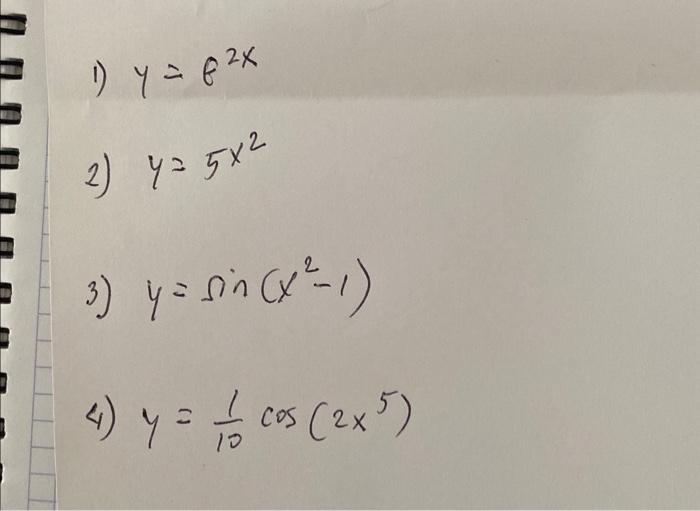 1) y = e^{2x}
2) y = 5x^2
3) y = sin(x^2-1)
4) y = \frac{1}{10} cos(2x^5)